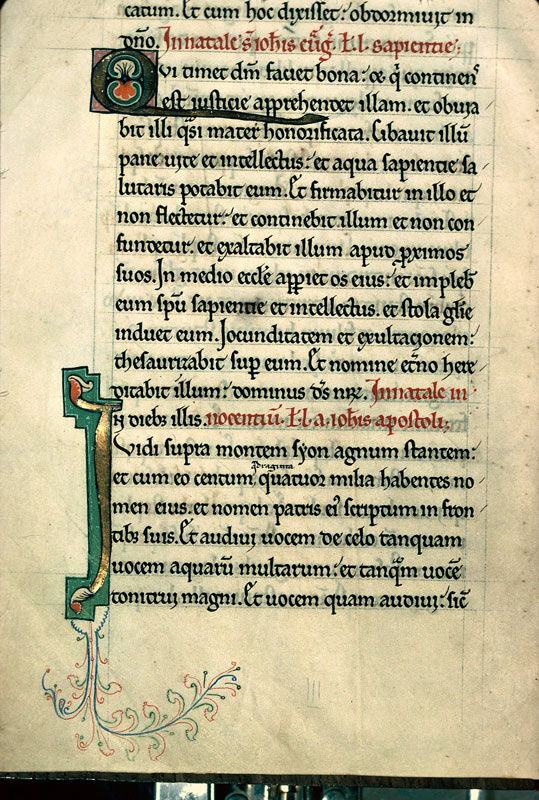 catum. Et cum hoc dixisset: obdormiuit in
dn̄o. In natale s̄ ioh̄is eūḡ. Ł. l. sapientie;
Qui timet dm̄ faciet bona: & q̄ continens
est iusticie apprehendet illam. et obuia
bit illi q̄si mater honorificata. Cibauit illū
pane uite et intellectus: et aqua sapientie sa
lutaris potabit eum. Et firmabitur in illo et
non flectetur: et continebit illum et non con
fundetur. et exaltabit illum apud ꝓximos
suos. In medio eccl̄e app̄iet os eius: et impleb̄
eum sp̄u sapientie et intellectus. et stola gl̄ie
induet eum. Jocunditatem et exultationem:
thesaurizabit sup̄ eum. Et nomine et̄no here
ditabit illum: dominus d̄s nr̄. In natale in
In dieb; illis. nocentiū. Ł. l. a. ioh̄is apostoli;
Vidi supra montem syon agnum stantem:
et cum eo centum q̄draginta quatuor milia habentes no
men eius. et nomen patris ei᾽ scriptum in fron
tib; suis. Et audiui uocem de celo tanquam
uocem aquarū multarum: et tanq̄m uocē
tonitrui magni. Et uocem quam audiui: sic̄